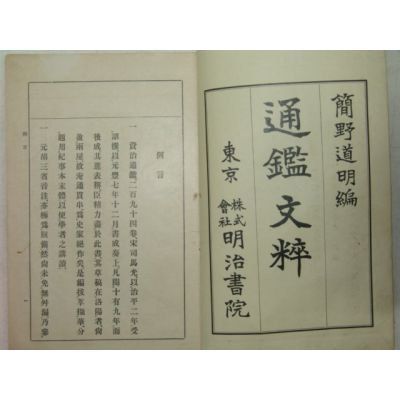 簡野道明編
通鑑文粹
東京 株式會社 明治書院
例言
一 資治通鑑二百九十四卷宋司馬光以治平二年受
詔撰以元豐七年十二月書成奏上凡閱十有九年而
後成其進表稱臣精力盡於此書草稿在洛陽者尚
盈兩屋故淹通貫串爲史家絕作矣是編拔萃擷華分
題用紀事本末體以便學者之講讀
一 元胡三省音注亦極爲賅備然尚未免無舛漏乃參
例言